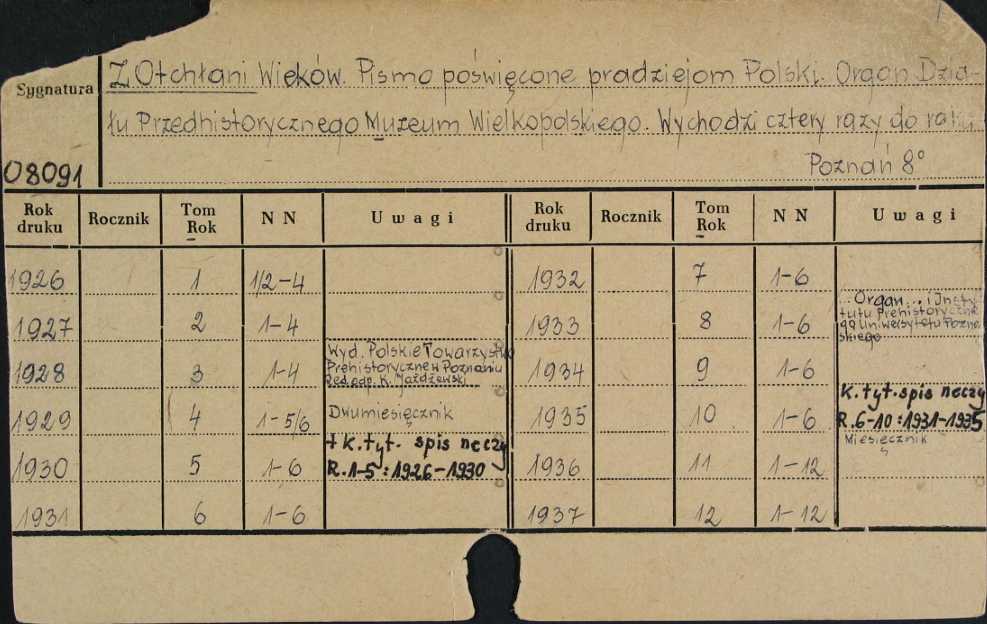 Z Otchłani Wieków. Pismo poświęcone pradziejom Polski. Organ Dzia-
Sygnatura
łu Przedhistorycznego Muzeum Wielkopolskiego. Wychodzi cztery razy do roku
08091
Poznań 8°
Rok druku Rocznik Tom Rok N N Uwagi Rok druku Rocznik Tom Rok N N Uwagi
1926 1 1/2-4 1932 7 1-6
1927 2 1-4 1933 8 1-6 ...Organ... i Insty-
tutu Prehistoryczne
go Uniwersytetu Pozna
skiego
1928 3 1-4 Wyd. Polskie Towarzystwo
Prehistoryczne w Poznaniu
Red. odp. K. Jażdżewski
1934 9 1-6
1929 4 1-5/6 Dwumiesięcznik 1935 10 1-6 K. tyt. spis rzeczy
R. 6-10 : 1931-1935
1930 5 1-6 + k. tyt. spis rzeczy
R. 1-5 : 1926-1930
1936 11 1-12 Miesięcznik
1931 6 1-6 1937 12 1-12